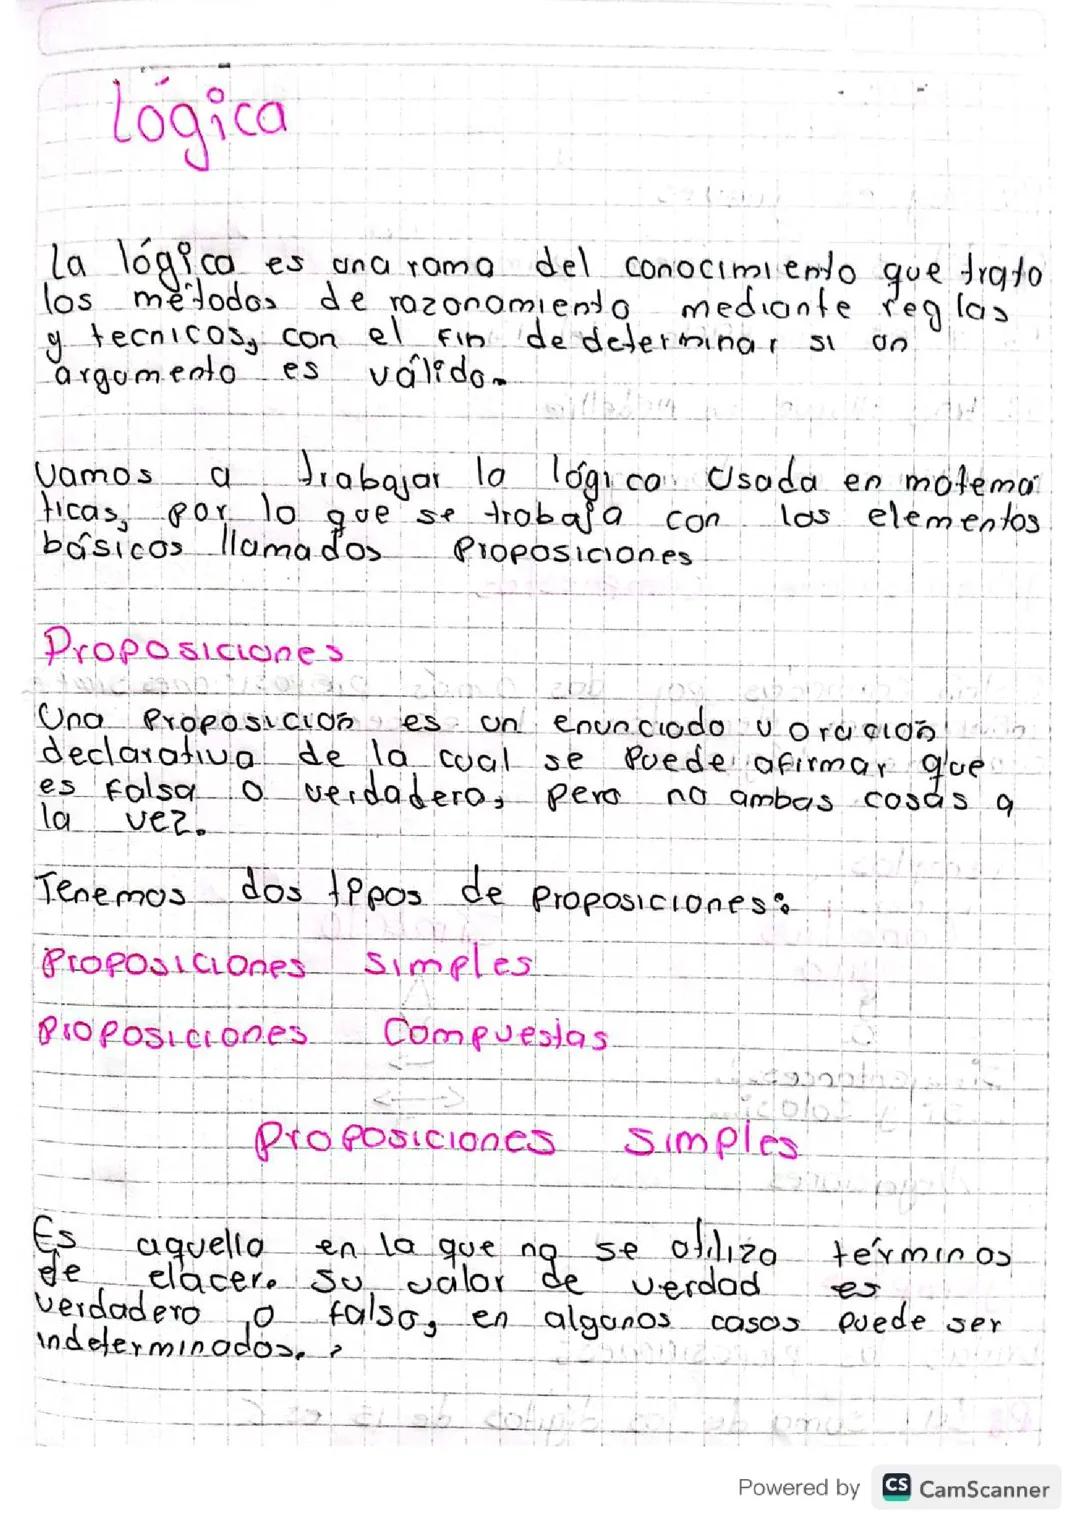 Lógica
La lógica es una rama del conocimiento que trata
los métodos de razonamiento mediante reglas
y tecnicas, con el fin de determinar si un
argumento es válido.
Vamos a trabajar la lógica usada en matema
ticas, por lo que se trabaja con los elementos
básicos llamados Proposiciones
Proposiciones
Una Proposición es un enunciado u oración
declarativa de la cual se Puede afirmar que
es falsa o verdadera, pero no ambas cosas a
la vez.
Tenemos dos tipos de Proposiciones:
Proposiciones simples
Proposiciones Compuestas
Proposiciones simples
Es aquella en la que no se utiliza términos
de elacer. Su valor de verdad es
verdadero o falso, en algunos casos puede ser
indeterminados.
Powered by CS CamScanner